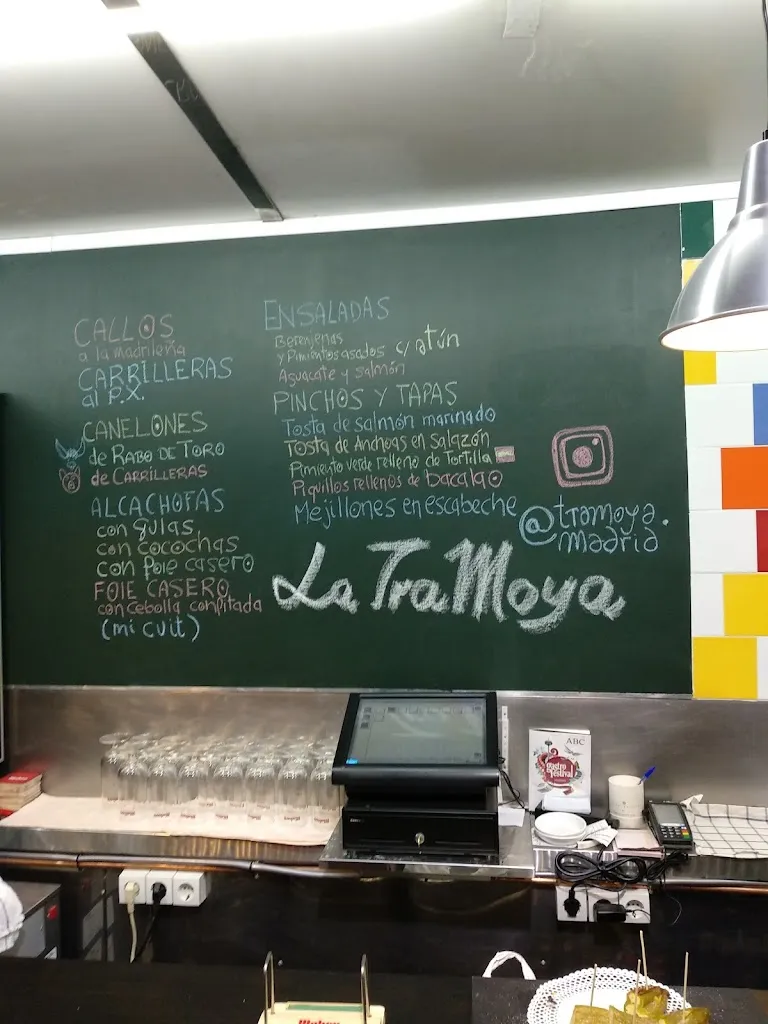 CALLOS
a la madrileña
CARRILLERAS
al P.X.
CANELONES
de RABO DE TORO
de CARRILLERAS
ALCACHOFAS
con gulas
con cocochas
con foie casero
FOIE CASERO
con cebolla confitada
(mi cuit)
ENSALADAS
Berenjenas
y Pimientos asados c/ atún
Aguacate y salmón
PINCHOS Y TAPAS
Tosta de salmón marinado
Tosta de Anchoas en salazón
Pimiento verde relleno de Tortilla
Piquillos rellenos de bacalao
Mejillones en escabeche
@tramoya.
madrid
La TraMoya
ABC
gastro
festival
Mahou